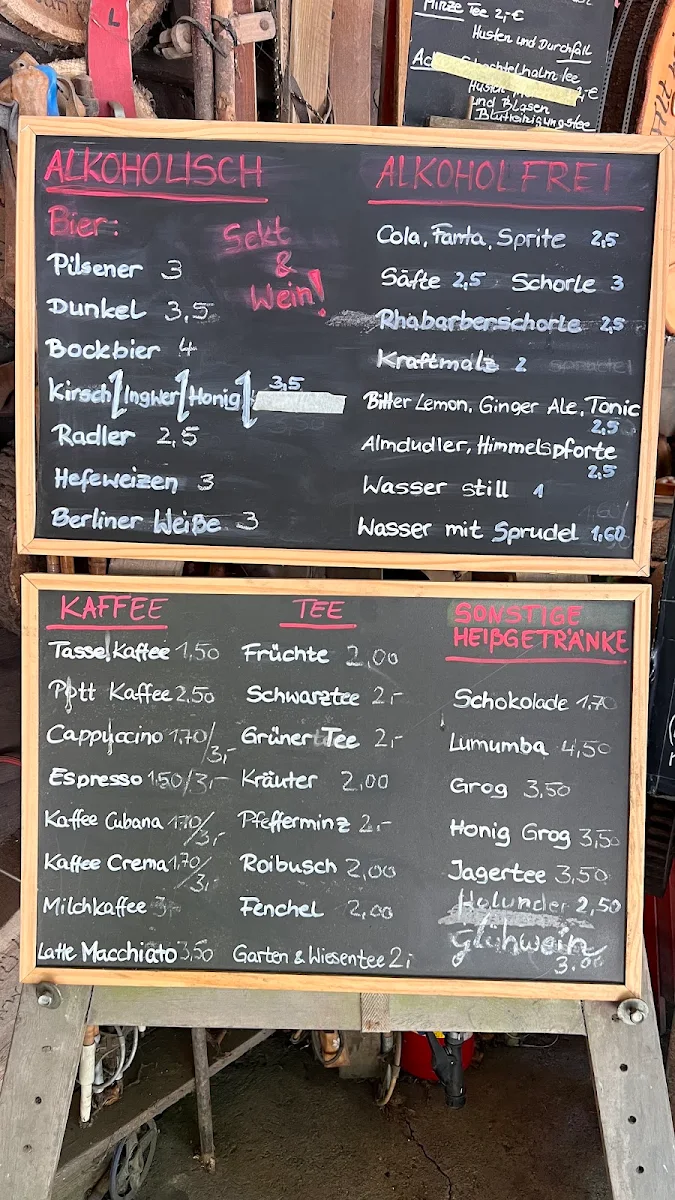 L
Hirze Tee 2,-€
Husten und Durchfall
Schachtelhalm tee
und Blasen
Blutreinigungstee
ALKOHOLISCH
Bier:
Pilsener 3
Dunkel 3,5
Bockbier 4
Kirsch/Ingwer/Honig/ 3,5
Radler 2,5
Hefeweizen 3
Berliner Weiße 3
Sekt
&
Wein!
ALKOHOLFREI
Cola, Fanta, Sprite 2,5
Säfte 2,5 Schorle 3
Rhabarberschorle 2,5
Kraftmalz 2
Bitter Lemon, Ginger Ale, Tonic
2,5
Almdudler, Himmelspforte
2,5
Wasser still 1
Wasser mit Sprudel 1,60
KAFFEE
Tasse Kaffee 1,50
Pott Kaffee 2,50
Cappuccino 1,70/3,-
Espresso 1,50/3,-
Kaffee Cubana 1,70/3,-
Kaffee Crema 1,70/3,-
Milchkaffee 3,-
Latte Macchiato 3,50
TEE
Früchte 2,00
Schwarztee 2,-
Grüner Tee 2,-
Kräuter 2,00
Pfefferminz 2,-
Roibusch 2,00
Fenchel 2,00
Garten & Wiesentee 2,-
SONSTIGE
HEIßGETRÄNKE
Schokolade 1,70
Lumumba 4,50
Grog 3,50
Honig Grog 3,50
Jagertee 3,50
Holunder 2,50
Glühwein
3,00